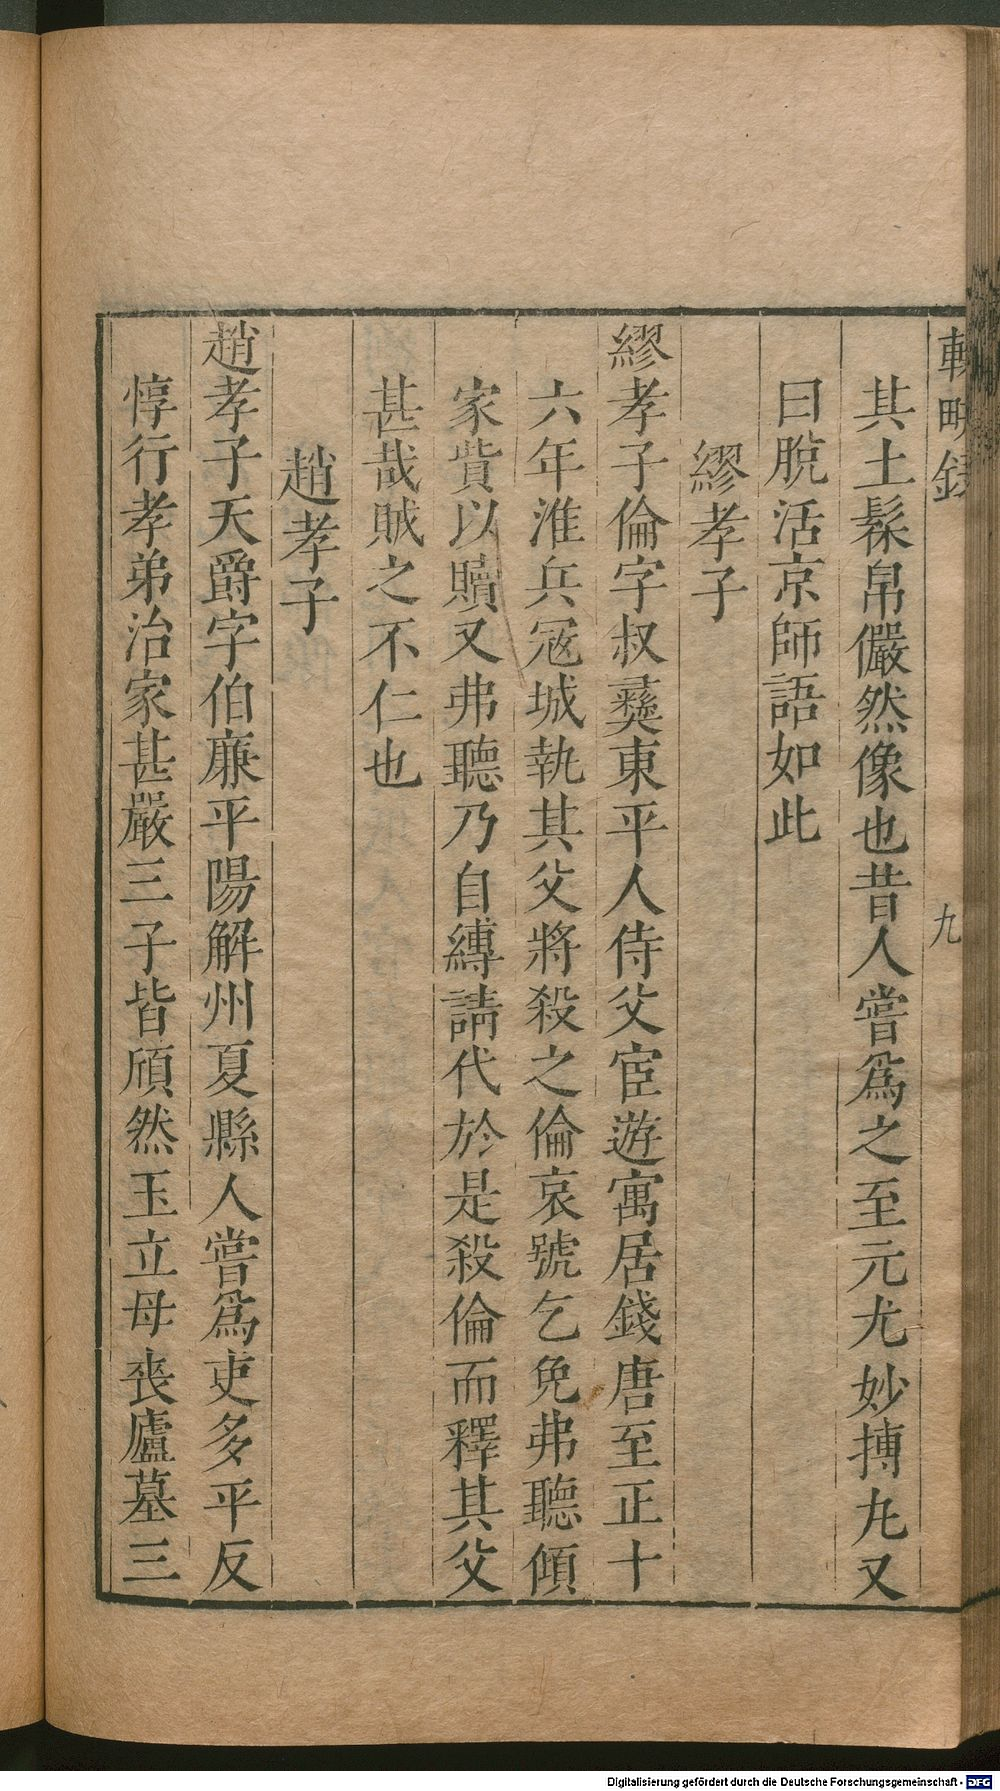 輟畊錄 九
其土髹帛儼然像也昔人嘗爲之至元尤妙摶丸又
曰脫活京師語如此
繆孝子
繆孝子倫字叔彞東平人侍父宦遊寓居錢唐至正十
六年淮兵冦城執其父將殺之倫哀號乞免弗聽傾
家貲以贖又弗聽乃自縳請代於是殺倫而釋其父
甚哉賊之不仁也
趙孝子
趙孝子天爵字伯廉平陽解州夏縣人嘗爲吏多平反
惇行孝弟治家甚嚴三子皆頎然玉立母喪廬墓三
Digitalisierung gefördert durch die Deutsche Forschungsgemeinschaft - DFG